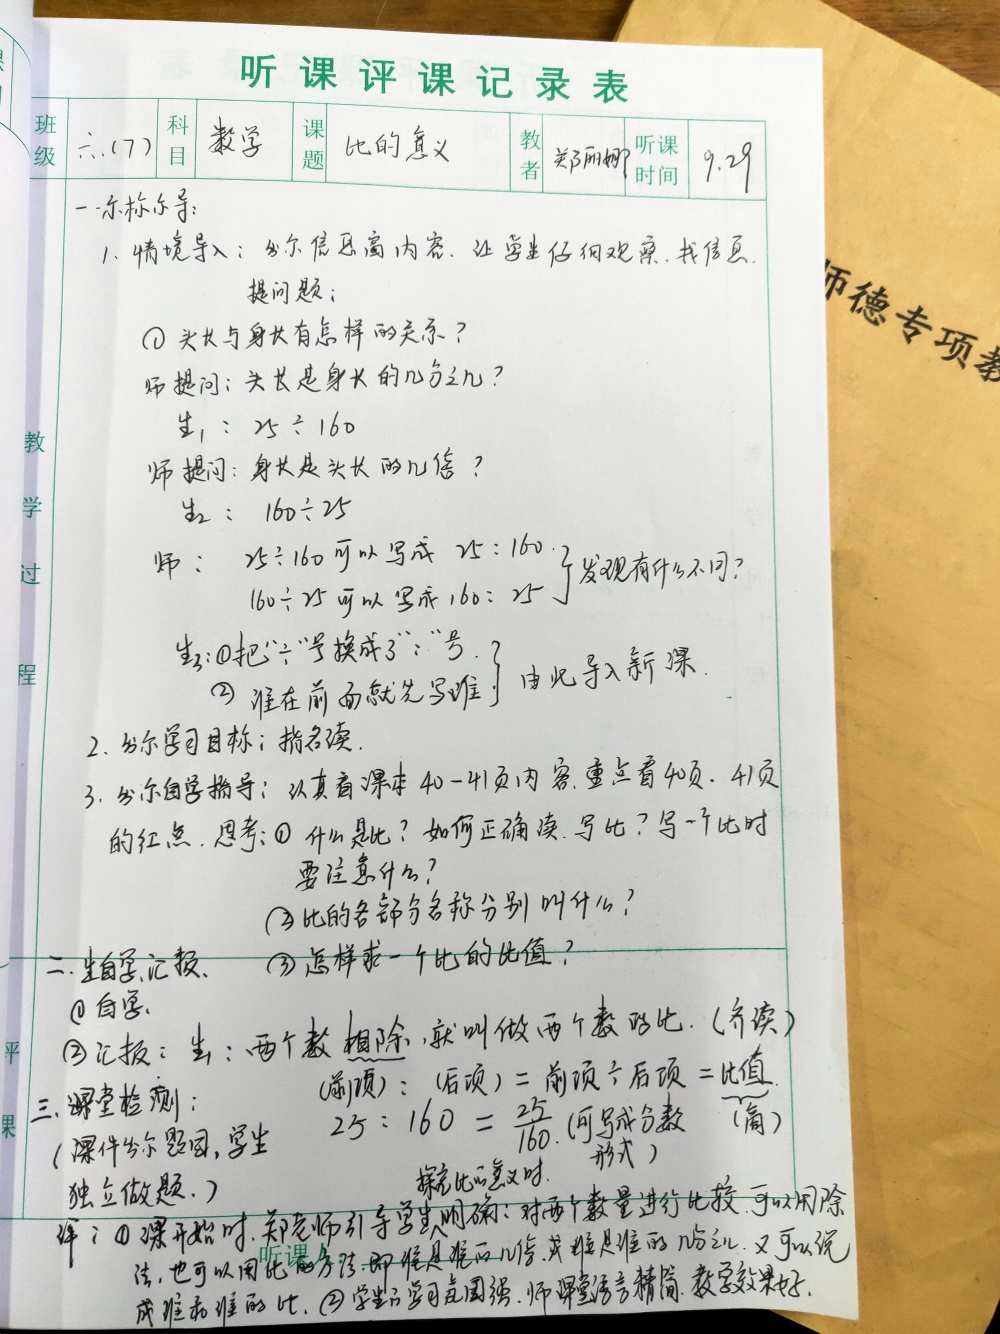 听课评课记录表
班级 六.(7) 科目 数学 课题 比的意义 教者 郑丽娜 听课时间 9.29
一.示标示导:
1. 情境导入: 出示信息窗内容. 让学生仔细观察. 找信息.
提问题:
① 头长与身长有怎样的关系?
师提问: 头长是身长的几分之几?
生1: 25÷160
师提问: 身长是头长的几倍?
生2: 160÷25
师: 25÷160可以写成 25:160.
160÷25可以写成160:25 } 发现有什么不同?
生3: ①把"÷"号换成了":"号.
② 谁在前面就先写谁 } 由此导入新课.
2. 出示学习目标; 指名读.
3. 出示自学指导: 认真看课本40-41页内容. 重点看40页. 41页
的红点. 思考: ① 什么是比? 如何正确读.写比? 写一个比时
要注意什么?
②比的各部分名称分别叫什么?
③怎样求一个比的比值?
二. 生自学、汇报.
① 自学.
② 汇报: 生1: 两个数相除, 就叫做两个数的比. (齐读)
(前项): (后项) = 前项÷后项 = 比值.
三. 课堂检测:
25:160 = 25/160. (可写成分数形式) (商)
(课件出示题目, 学生
独立做题.)
探究比的意义时.
评: ① 课开始时, 郑老师引导学生明确: 对两个数量进行比较. 可以用除
法, 也可以用比的方法. 即谁是谁的几倍, 或谁是谁的几分之几. 又可以说
成谁和谁的比. ② 学生的学习氛围强. 师课堂语言精简. 教学效果好.
教学过程
评课
听课
师德专项教